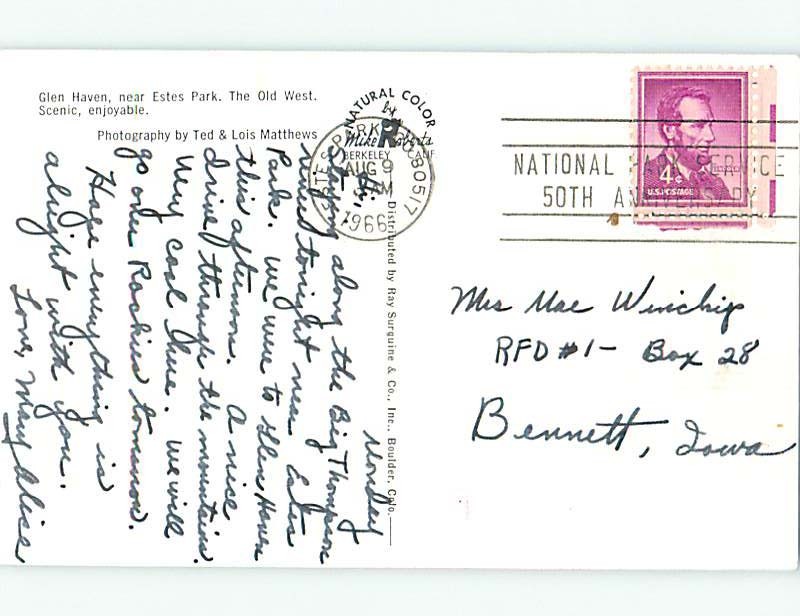 Glen Haven, near Estes Park. The Old West.
Scenic, enjoyable.
Photography by Ted & Lois Matthews
NATURAL COLOR
by
Mike Roberts
BERKELEY CALIF.
Distributed by Ray Surguine & Co., Inc., Boulder, Colo.
PARK
AUG 9
AM
1966
80517
NATIONAL PARK SERVICE
50TH ANNIVERSARY
4¢
U.S. POSTAGE
Monday
along the Big Thompson
tonight near Estes
Park. We were to Glen Haven
this afternoon. A nice
drive through the mountains.
Very cool here. We will
go over Rockies tomorrow.
Hope everything is
alright with you.
Love, Mary Alice
Mrs Mae Winchip
RFD #1 - Box 28
Bennett, Iowa